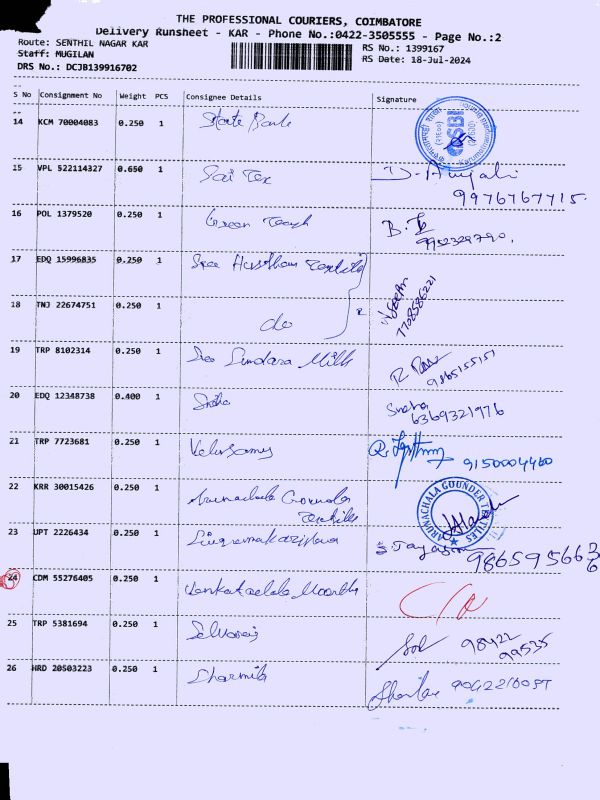 THE PROFESSIONAL COURIERS, COIMBATORE
Delivery Runsheet - KAR - Phone No.:0422-3505555 - Page No.:2
Route: SENTHIL NAGAR KAR
Staff: MUGILAN
DRS No.: DCJB139916702
RS No.: 1399167
RS Date: 18-Jul-2024
S No Consignment No Weight PCS Consignee Details Signature
14 KCM 70004083 0.250 1 State Bank SBI
15 VPL 522114327 0.650 1 Sai Tex
9976767715.
16 POL 1379520 0.250 1 Green
B.
17 EDQ 15996835 0.250 1 Sree Textile
18 TNJ 22674751 0.250 1 do
7708586221
19 TRP 8102314 0.250 1 Sree Sundara Mills R
9865155151
20 EDQ 12348738 0.400 1 Sneha Sneha
6369321976
21 TRP 7723681 0.250 1 Velusamy
9150004460
22 KRR 30015426 0.250 1 Arunachala Gounder
Textiles
ARUNACHALA GOUNDER TEXTILES
23 UPT 2226434 0.250 1
24 CDM 55276405 0.250 1 Venkatachala Moorthy
25 TRP 5381694 0.250 1 Selvaraj 98422
99535
26 HRD 20503223 0.250 1 Sharmila